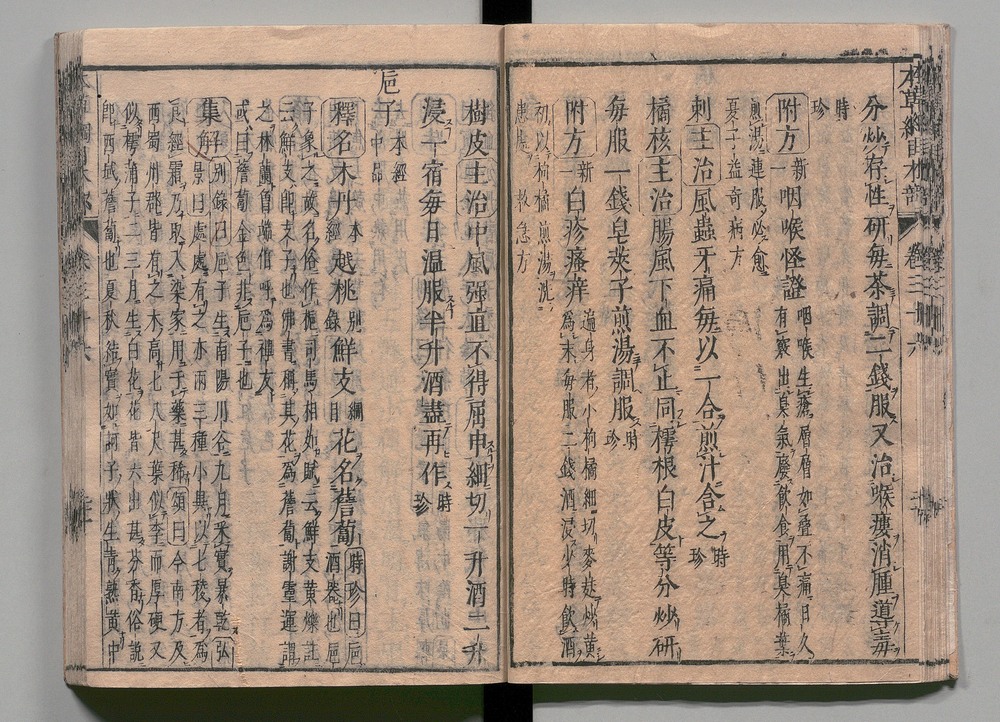 本草綱目木部 卷三十六
分炒存性研每茶調二錢服又治喉瘻消腫導毒
時珍
附方 新一 咽喉怪證 咽喉生瘡層層如疊不痛日久有竅出臭氣廢飲食用臭橘葉煎湯連服必愈夏子益奇病方
刺 主治 風蟲牙痛每以一合煎汁含之 時珍
橘核 主治 腸風下血不止同樗根白皮等分炒研
每服一錢皂莢子煎湯調服 時珍
附方 新一 白疹瘙痒 遍身者小枸橘細切麥麩炒黃為末每服二錢酒浸少時飲酒初以枸橘煎湯洗患處 救急方
樹皮 主治 中風強直不得屈申細切一升酒二升
浸一宿每日溫服半升酒盡再作 時珍
巵子 本經中品
釋名 木丹 本經 越桃 別錄 鮮支 綱目 花名薝蔔 時珍曰巵酒器也巵
子象之故名俗作梔司馬相如賦云鮮支黃爍註
云鮮支即支子也佛書稱其花為薝蔔謝靈運謂
之林蘭曾端伯呼為禪友
或曰薝蔔金色非巵子也
集解 別錄曰巵子生南陽川谷九月采實暴乾弘
景曰處處有之亦兩三種小異以七稜者為
良經霜乃取入染家用于藥甚稀頌曰今南方及
西蜀州郡皆有之木高七八尺葉似李而厚硬又
似樗蒲子二三月生白花花皆六出甚芬香俗說
即西域薝蔔也夏秋結實如訶子狀生青熟黃中
巵